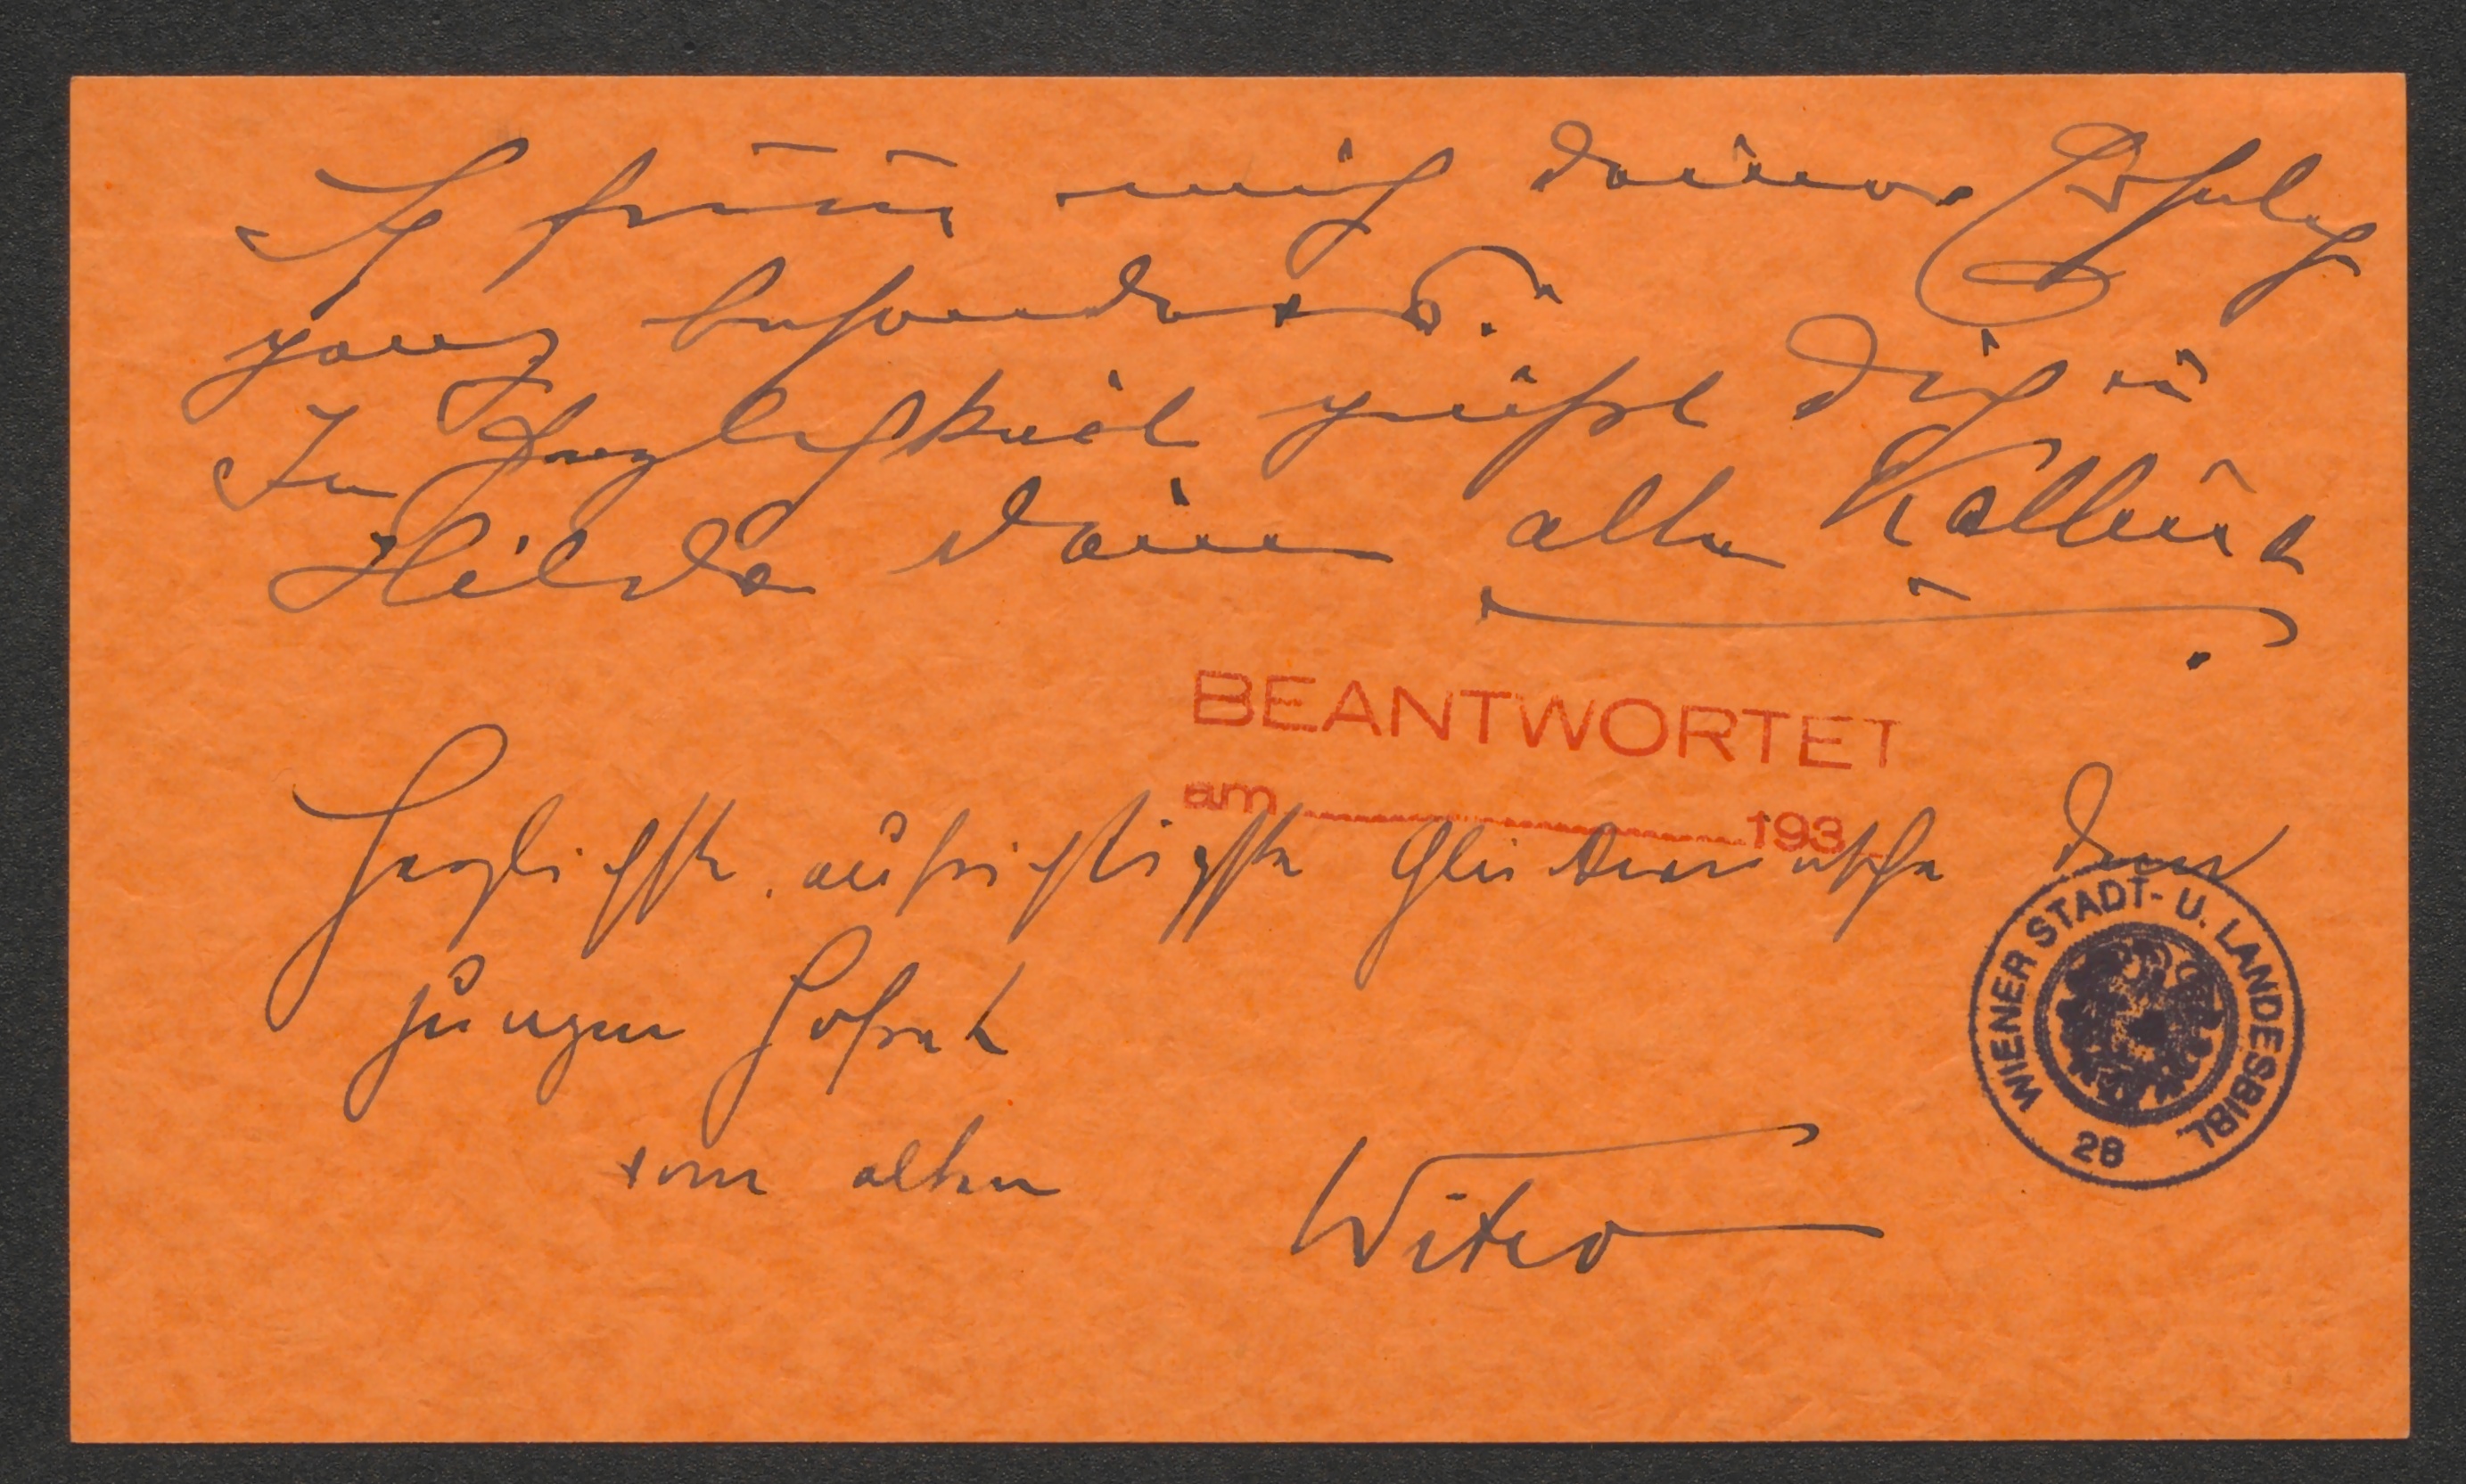 Ich freue mich Deines Erfolgs
ganz besonders.
In Herzlichkeit grüßt Dich u
Hilda Dein alter
BEANTWORTET
am 193
Herzlichste, aufrichtigste Glückwünsche dem
jungen Hofrat
vom alten
WIENER STADT- U. LANDESBIBL.
28